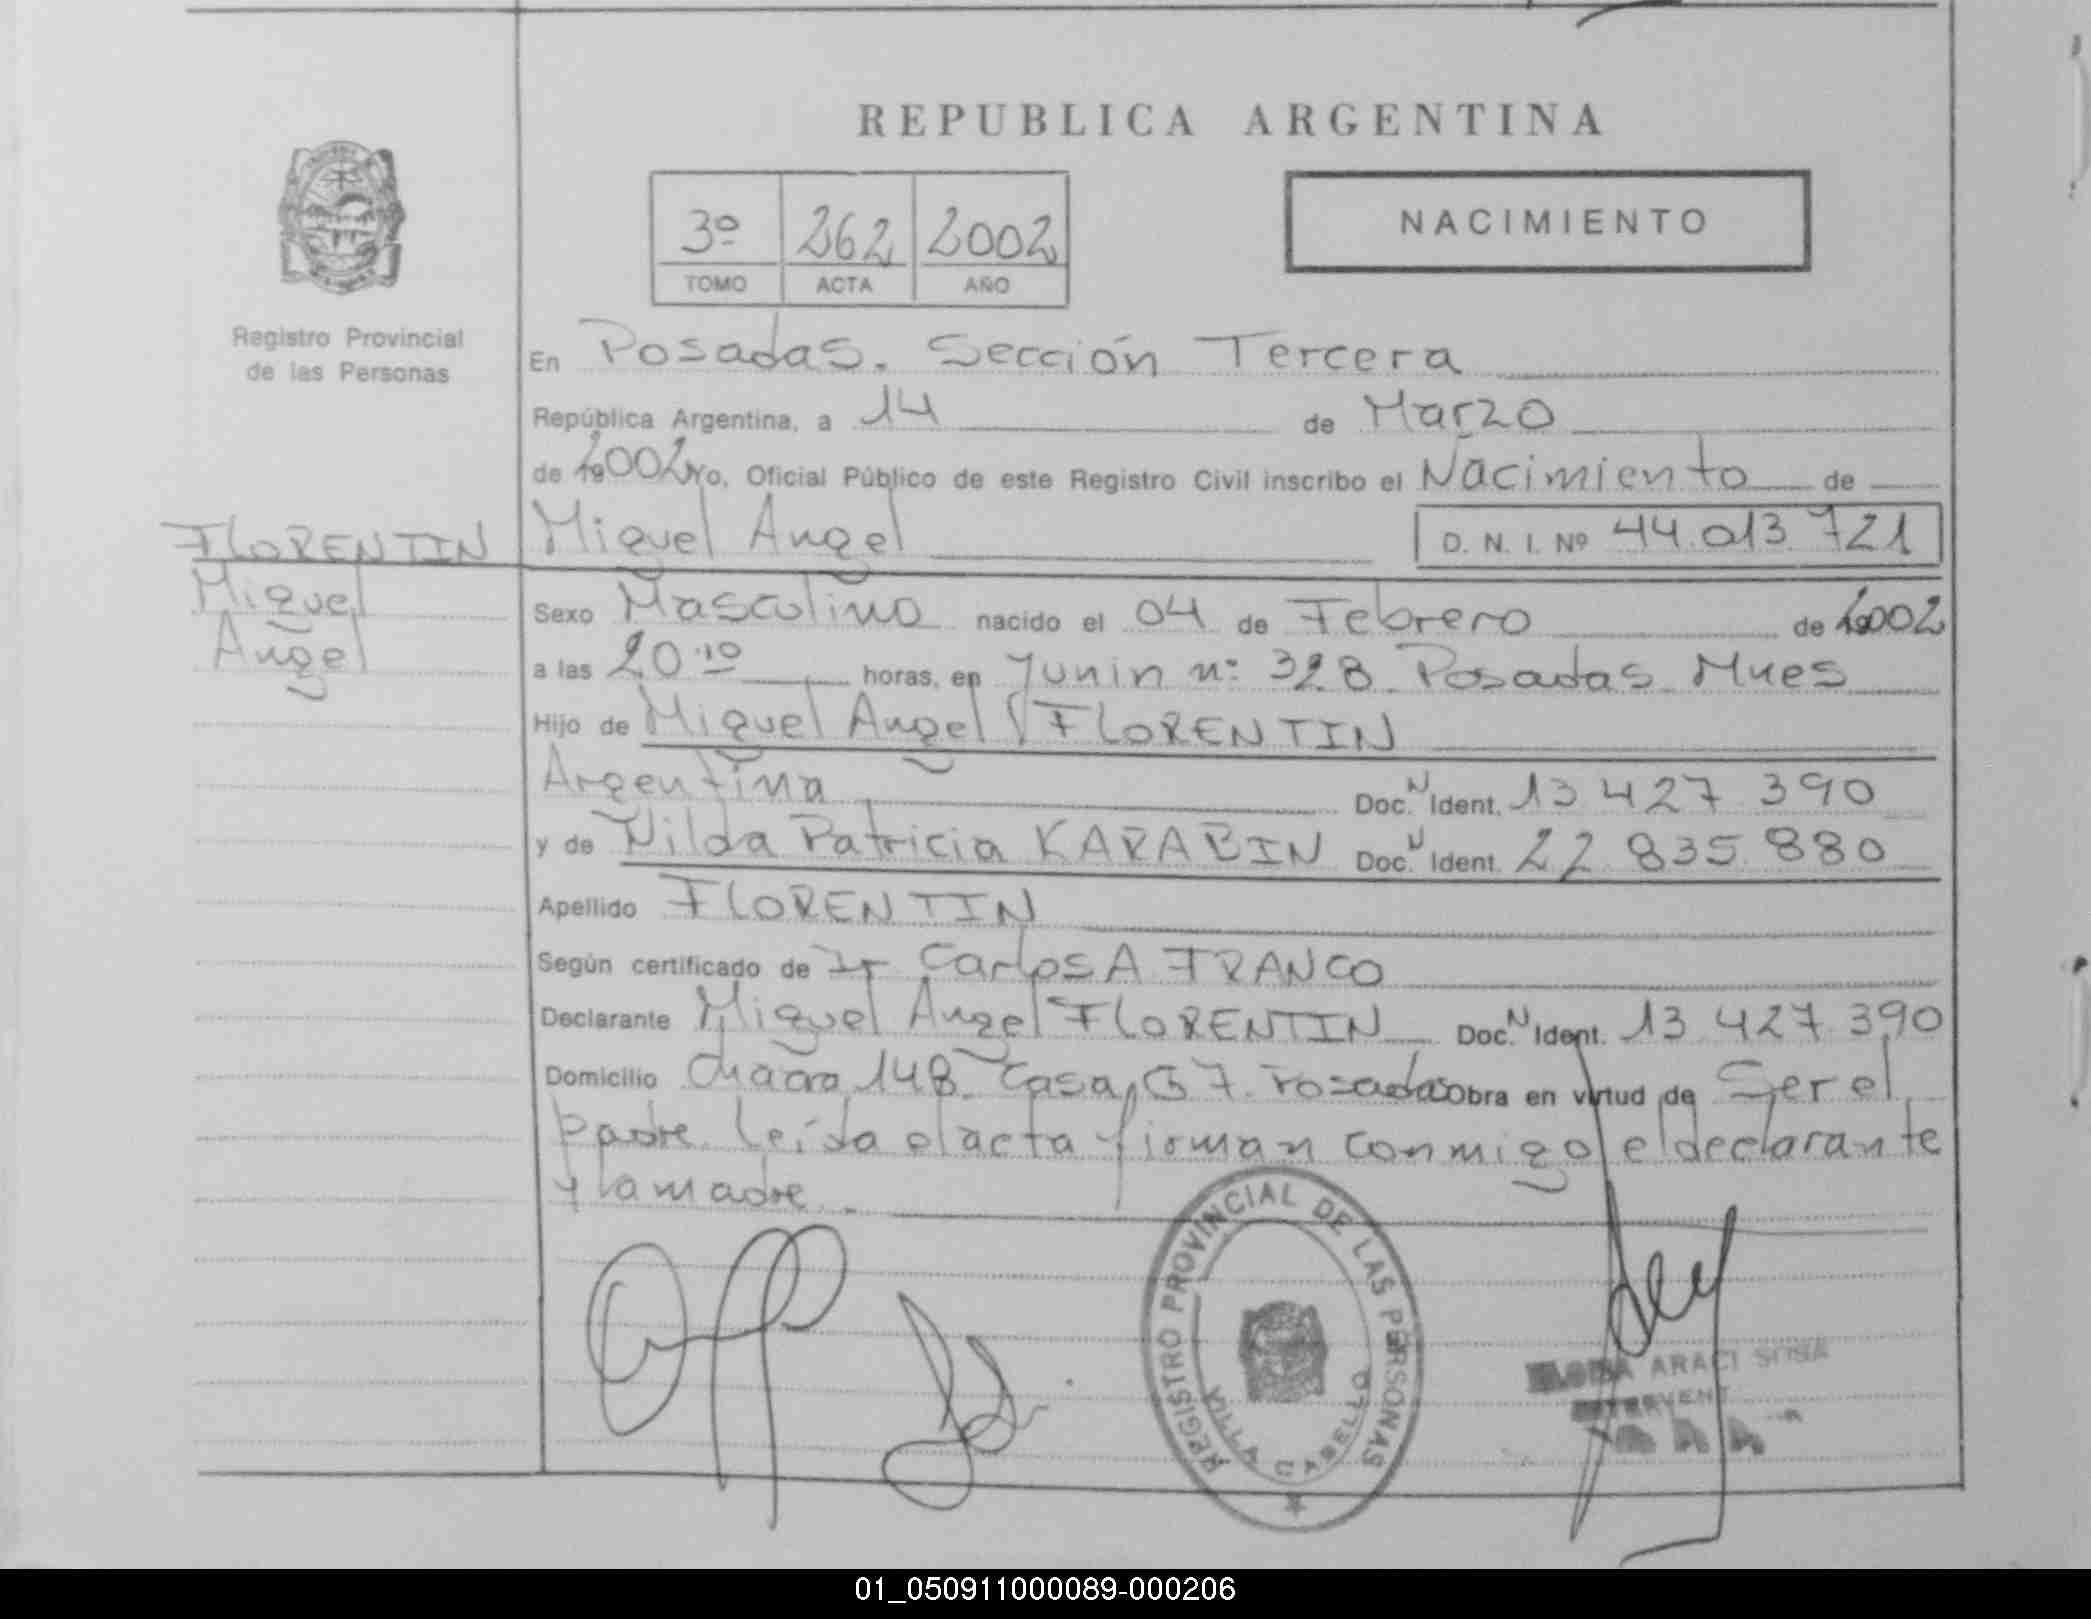 REPUBLICA ARGENTINA
3º 262 2002
TOMO ACTA AÑO
NACIMIENTO
Registro Provincial
de las Personas
En Posadas. Sección Tercera
República Argentina, a 14 de Marzo
de 2002 Yo, Oficial Público de este Registro Civil inscribo el Nacimiento de
FLORENTIN
Miguel
Angel
Miguel Angel D. N. I. Nº 44.013.721
Sexo Masculino nacido el 04 de Febrero de 2002
a las 20:10 horas, en Junin n: 328 Posadas Mnes
Hijo de Miguel Angel FLORENTIN
Argentina Doc. N Ident. 13 427 390
y de Nilda Patricia KARABIN Doc. N Ident. 22 835 880
Apellido FLORENTIN
Según certificado de Dr Carlos A FRANCO
Declarante Miguel Angel FLORENTIN Doc. N Ident. 13 427 390
Domicilio Chacra 148 Casa G 7. Posadas Obra en virtud de Ser el
padre. Leída el acta firman conmigo el declarante
y la madre.
REGISTRO PROVINCIAL DE LAS PERSONAS
VILLA CABELLO
ARACI SOSA
01_050911000089-000206